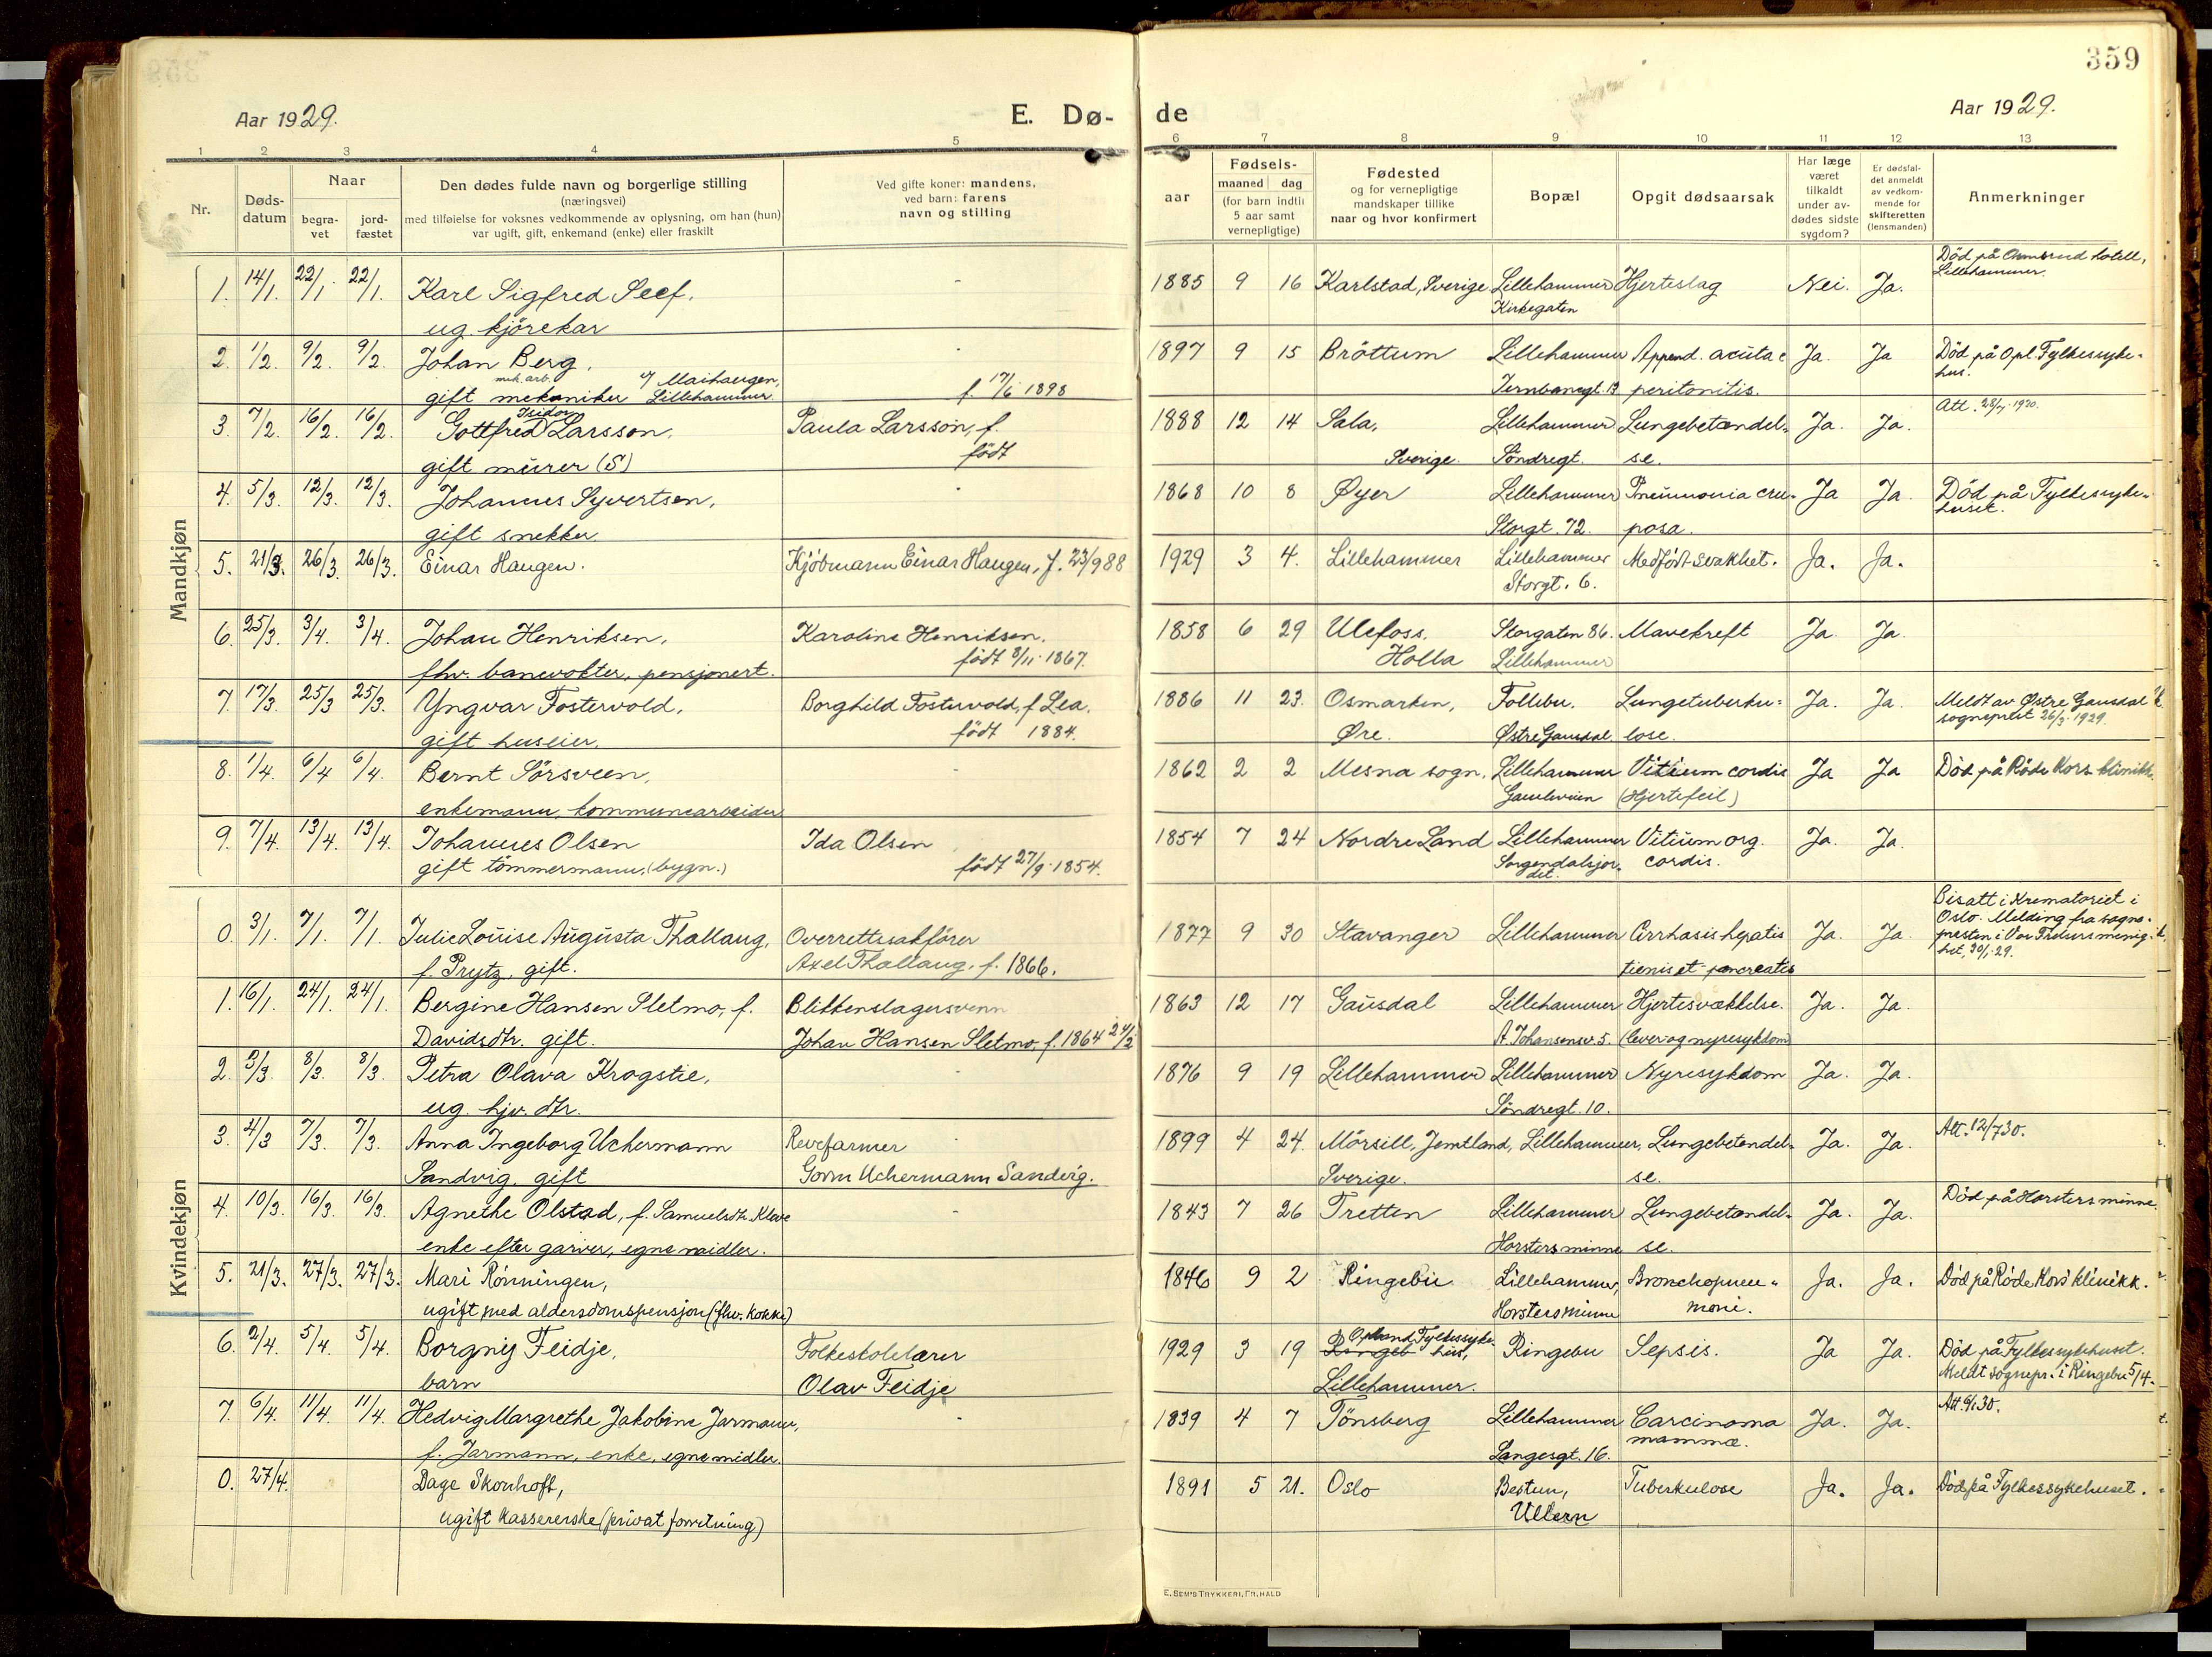 359
Aar 1929.
E. Dø-
de
Aar 1929.
1 2 3 4 5 6 7 8 9 10 11 12 13
Nr.
Døds-
datum
Naar
begra-
vet
jord-
fæstet
Den dødes fulde navn og borgerlige stilling
(næringsvei)
med tilføielse for voksnes vedkommende av oplysning, om han (hun)
var ugift, gift, enkemand (enke) eller fraskilt
Ved gifte koner: mandens,
ved barn: farens
navn og stilting
Fødsels-
aar
maaned dag
(for barn indtil
5 aar samt
vernepligtige)
Fødested
og for vernepligtige
mandskaper tillike
naar og hvor konfirmert
Bopæl
Opgit dødsaarsak
Har læge
været
tilkaldt
under av-
dødes sidste
sygdom?
Er dødsfal-
det anmeldt
av vedkom-
mende for
skifteretten
(lensmanden)
Anmerkninger
Mandkjøn
1. 14/1. 22/1. 22/1. Karl Sigfred Seef. - 1885 9 16 Karlstad, Sverige Lillehammer Hjerteslag Nei. Ja. Død på Ormsrud hotell,
ug. kjörekar Kirkegaten Lillehammer.
2. 1/2. 9/2. 9/2. Johan Berg, - 1897 9 15 Bröttum Lillehammer Append. acuta c Ja. Ja Död på Opl. Fylkessyke-
mek. arb. v/ Maihaugen,
gift mekaniker Lillehammer f. 17/6 1898 Jernbanegt. 13 peritonitis. hus.
3. 7/2. 16/2. 16/2. Gottfred Isidor Larsson, Paula Larsson, f. 1888 12 14 Sala, Lillehammer Lungebetændel- Ja. Ja. Att. 1930.
gift murer (S) födt Sverige. Söndregt. se.
4. 5/3. 12/3. 12/3. Johannes Syvertsen, - 1868 10 8 Øyer Lillehammer Pneumonia cru- Ja Ja. Död på Fylkessyke-
gift snekker. Storgt. 72. posa. huset.
5. 21/3. 26/3. 26/3. Einar Haugen. Kjöbmann Einar Haugen, f. 23/9 88 1929 3 4. Lillehammer Lillehammer Medfödt svakhet. Ja. Ja.
Storgt. 6.
6. 25/3. 3/4. 3/4. Johan Henriksen, Karoline Henriksen. 1858 6 29 Ulefoss, Storgaten 86. Mavekreft Ja. Ja.
fhv. banevokter, pensjonert. födt 8/11 1867. Holla Lillehammer
7. 17/3. 25/3 25/3. Yngvar Fostervold, Borghild Fostervold, f Lea. 1886 11 23. Osmarken, Follebu. Lungetuberku= Ja. Ja. Meldt av Østre Gausdal
gift huseier. födt 1884. Øre. Østre Gausdal. lose. sogneprest 26/3 1929.
8. 1/4. 6/4 6/4. Bernt Sörsveen, - 1862 2 2 Mesna sogn. Lillehammer Vitium cordis Ja Ja Död på Röde Kors klinikk.
enkemann, kommunearbeider Gamleveien (Hjertefeil)
9. 7/4. 13/4. 13/4. Johannes Olsen Ida Olsen 1854 7 24 Nordre Land Lillehammer Vitium org. Ja. Ja.
gift tömmermann, (bygn.) födt 27/9 1854. Sorgendalsjor- cordis.
det.
Kvindekjøn
0. 3/1. 7/1. 7/1. Julie Louise Augusta Thallaug, Overrettssakförer 1877 9 30 Stavanger Lillehammer Cirrhasis hepatis Ja. Ja. Bisatt i Krematoriet i
f. Prytz, gift. Axel Thallaug, f. 1866. lienis et pancreatis Oslo. Melding fra sogne-
presten i Vor Frelsers menig-
het, 30/1-29.
1. 16/1. 24/1. 24/1. Bergine Hansen Sletmo, f. Blikkenslagersvenn 1863 12 17 Gausdal Lillehammer Hjertesvækkelse. Ja. Ja.
Davidsdtr. gift. Johan Hansen Sletmo, f. 1864 24/2 A. Johansensv. 5. (lever og nyresykdom)
2. 3/3. 8/3. 8/3. Petra Olava Krogstie, - 1876 9 19 Lillehammer Lillehammer Nyresykdom Ja. Ja.
ug. hjv. dtr. Söndregt. 10.
3. 4/3 7/3. 7/3. Anna Ingeborg Uchermann Revefarmer 1899 4 24. Mörsill, Jemtland, Lillehammer, Lungebetændel- Ja. Ja. Att. 12/7 30.
Sandvig, gift Gorm Uchermann Sandvig. Sverige. se.
4. 10/3. 16/3. 16/3. Agnethe Olstad, f. Samuelsdtr. Kleve - 1843 7 26 Tretten Lillehammer Lungebetændel- Ja. Ja. Död på Horsters minne.
enke efter garver, egne midler. Horsters minne se.
5. 21/3. 27/3. 27/3. Mari Rönningen, 1846 9 2 Ringebu Lillehammer, Bronchopneu- Ja. Ja. Död på Röde Kors' klinikk.
ugift med alderdomspensjon (fhv. kokke) Horsters minne moni.
6. 2/4. 5/4. 5/4. Borgny Feidje, Folkeskolelærer 1929 3 19 Ringeb Opland Fylkessyke-hus, Ringebu Sepsis. Ja Ja. Död på Fylkessykehuset.
barn Olav Feidje Lillehammer. Meldt sognepr. i Ringebu 5/4.
7. 6/4. 11/4. 11/4. Hedvig Margrethe Jakobine Jarmann, - 1839 4 7 Tönsberg Lillehammer Carcinoma Ja. Ja. Att. 30.
f. Jarmann, enke, egne midler. Langesgt. 16. mammæ.
0. 27/4. Dage Skouhoft, 1891 5 21. Oslo Bestun, Tuberkulose Ja. Ja. Död på Fylkessykehuset.
ugift kassererske (privat forretning) Ullern
E. SEM'S TRYKKERI, FR. HALD